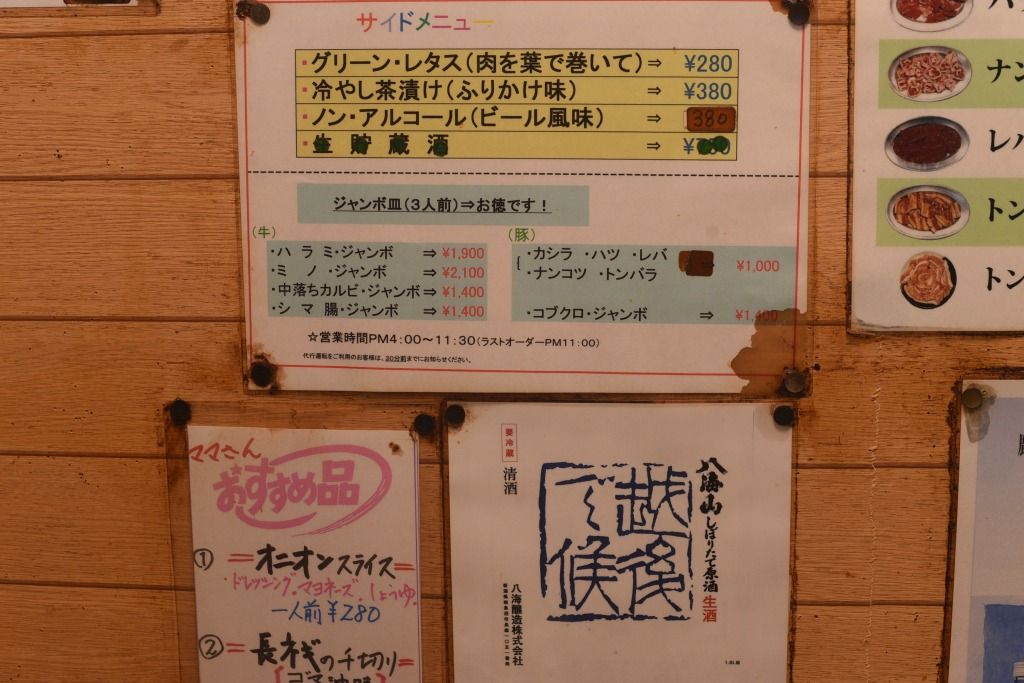 サイドメニュー
・グリーン・レタス(肉を葉で巻いて)⇒ ¥280
・冷やし茶漬け(ふりかけ味) ⇒ ¥380
・ノン・アルコール(ビール風味) ⇒ 380
・生 貯 蔵 酒 ⇒ ¥
ジャンボ皿(3人前)⇒お徳です!
(牛)
・ハ ラ ミ・ジャンボ ⇒ ¥1,900
・ミ ノ ・ジャンボ ⇒ ¥2,100
・中落ちカルビ・ジャンボ⇒ ¥1,400
・シ マ 腸・ジャンボ ⇒ ¥1,400
(豚)
・カシラ ・ハツ ・レバ
・ナンコツ ・トンバラ
¥1,000
・コブクロ・ジャンボ ⇒ ¥1,400
☆営業時間PM4:00~11:30(ラストオーダーPM11:00)
代行運転をご利用のお客様は、30分前までにお知らせください。
ナン
レバ
トン
トン
ママさん
おすすめ品
① =オニオンスライス=
ドレッシング.マヨネーズ.しょうゆ.
一人前¥280
② =長ネギの千切り=
[ゴマ油味]
八海山しぼりたて原酒生酒
越後で候
要冷蔵
清酒
八海醸造株式会社